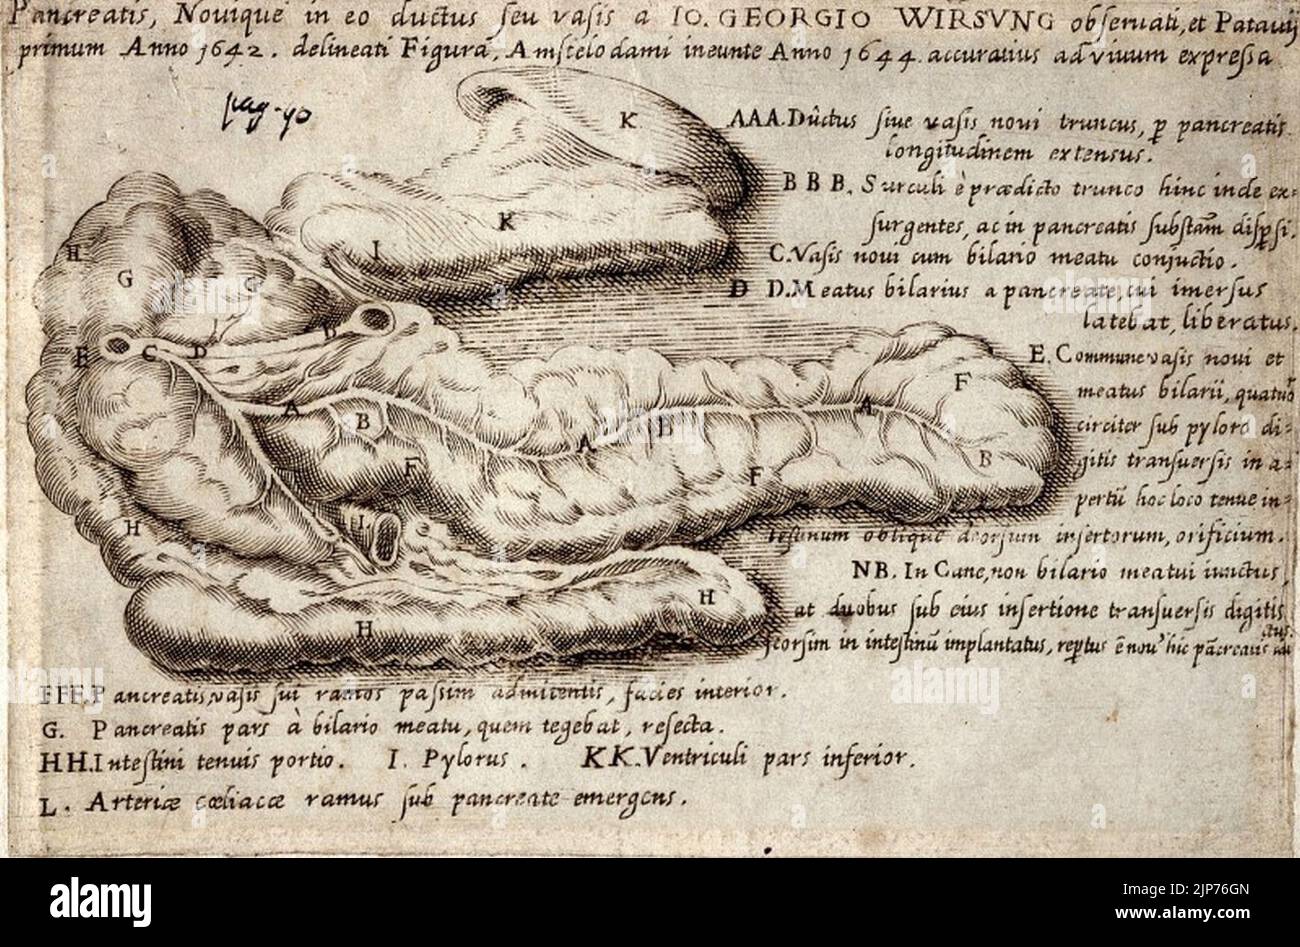 Pancreatis, Novique in eo ductus seu vasis a IO. GEORGIO WIRSVNG obseruati, et Patauij
primum Anno 1642. delineati Figura, Amstelodami ineunte Anno 1644. accuratius ad viuum expressa
pag. 90
K
K
I
H
G
G
E
C
D
D
A
B
F
A
B
A
F
B
F
L
H
H
H
AAA. Ductus siue vasis noui truncus, p pancreatis
longitudinem extensus.
BBB. Surculi è prædicto trunco hinc inde ex-
surgentes, ac in pancreatis substam dispsi.
C. Vasis noui cum bilario meatu coniuctio.
D D. Meatus bilarius a pancreate, cui imersus
latebat, liberatus.
E. Commune vasis noui et
meatus bilarii, quatuor
circiter sub pyloro di-
gitis transuersis in a-
pertū hoc loco tenue in-
testinum oblique deorsum insertorum, orificium.
NB. In Cane, non bilario meatui iunctus,
at duobus sub eius insertione transuersis digitis
deorsim in intestinū implantatus, reptus ē nou hic pācreatis
FFF. Pancreatis, vasis sui ramos passim admittentis, facies interior.
G. Pancreatis pars à bilario meatu, quem tegebat, resecta.
H.H. Intestini tenuis portio. I. Pylorus. KK. Ventriculi pars inferior.
L. Arteriæ cœliacæ ramus sub pancreate emergens.
alamy
Image ID: 2JP76GN
www.alamy.com